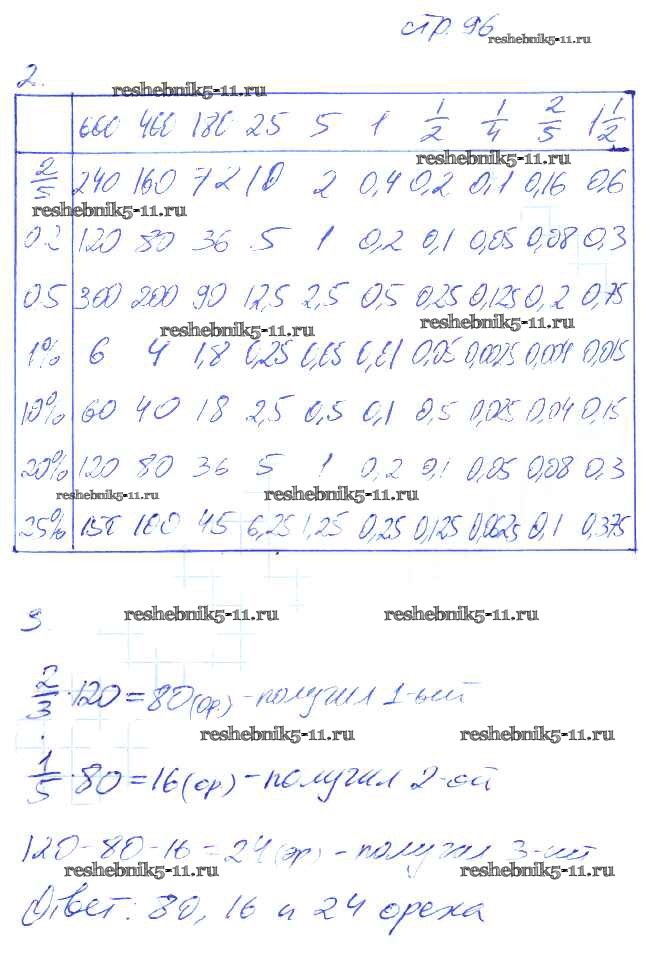 стр. 96
reshebnik5-11.ru
2.
reshebnik5-11.ru
600 400 180 25 5 1 1/2 1/4 2/5 1 1/2
reshebnik5-11.ru
2/5 240 160 72 10 2 0,4 0,2 0,1 0,16 0,6
reshebnik5-11.ru
0.2 120 80 36 5 1 0,2 0,1 0,05 0,08 0,3
0.5 300 200 90 12,5 2,5 0,5 0,25 0,125 0,2 0,75
reshebnik5-11.ru reshebnik5-11.ru
1% 6 4 1,8 0,25 0,05 0,01 0,05 0,0025 0,004 0,015
10% 60 40 18 2,5 0,5 0,1 0,5 0,025 0,04 0,15
20% 120 80 36 5 1 0,2 0,1 0,05 0,08 0,3
reshebnik5-11.ru reshebnik5-11.ru
25% 150 100 45 6,25 1,25 0,25 0,125 0,0625 0,1 0,375
3
reshebnik5-11.ru reshebnik5-11.ru
2/3 · 120 = 80 (ор.) - получил 1-ый
reshebnik5-11.ru reshebnik5-11.ru
1/5 · 80 = 16 (ор) - получил 2-ой
120 - 80 - 16 = 24 (ор) - получил 3-ий
reshebnik5-11.ru reshebnik5-11.ru
Ответ: 80, 16 и 24 ореха